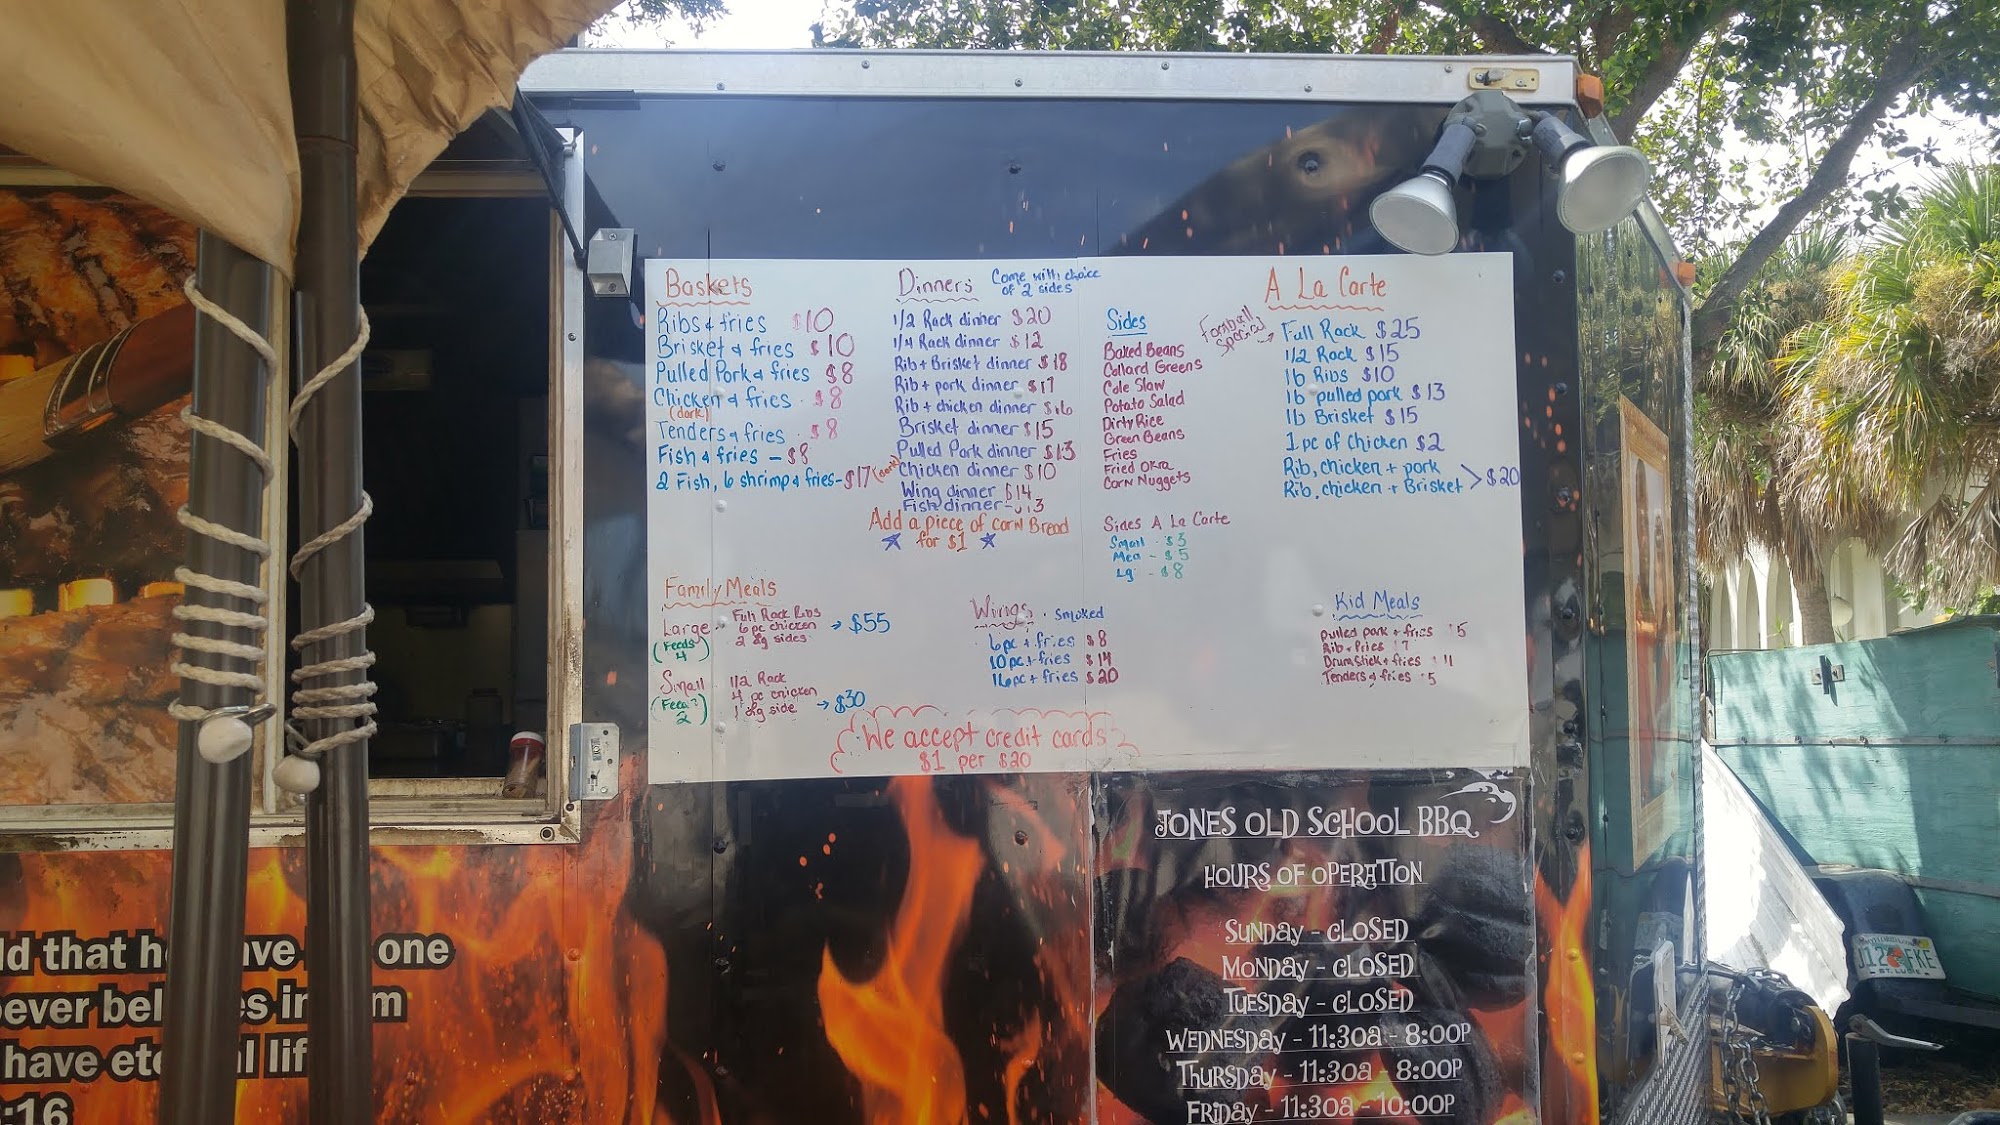 Baskets
Ribs & fries $10
Brisket & fries $10
Pulled Pork & fries $8
Chicken & fries $8
(dark)
Tenders & fries $8
Fish & fries - $8
2 Fish, 6 shrimp & fries - $17
Dinners Come with choice
of 2 sides
1/2 Rack dinner $20
1/4 Rack dinner $12
Rib + Brisket dinner $18
Rib + pork dinner $17
Rib + chicken dinner $16
Brisket dinner $15
Pulled Pork dinner $13
Chicken dinner $10
Wing dinner $14
Fish dinner - $13
Add a piece of corn Bread
for $1
Sides
Baked Beans
Collard Greens
Cole Slaw
Potato Salad
Dirty Rice
Green Beans
Fries
Fried Okra
Corn Nuggets
Sides A La Carte
Small - $3
Med - $5
Lg - $8
A La Carte
Football
Special
Full Rack $25
1/2 Rack $15
1b Ribs $10
1b pulled pork $13
1b Brisket $15
1 pc of chicken $2
Rib, chicken + pork
Rib, chicken + Brisket > $20
Family Meals
Large
(Feeds
4)
Full Rack Ribs
6 pc chicken
2 Lg sides
→ $55
Small
(Feeds
2)
1/2 Rack
4 pc chicken
1 Lg side
→ $30
Wings · Smoked
6 pc + fries $8
10 pc + fries $14
16 pc + fries $20
Kid Meals
pulled pork + fries $5
Rib + fries $7
Drumstick + fries
Tenders & fries $5
We accept credit cards
$1 per $20
JONES OLD SCHOOL BBQ
HOURS OF OPERATION
SUNDAY - CLOSED
MONDAY - CLOSED
TUESDAY - CLOSED
WEDNESDAY - 11:30A - 8:00P
THURSDAY - 11:30A - 8:00P
FRIDAY - 11:30A - 10:00P
ld that he ave one
ever bel es in m
have ete al lif
:16
J12 FKE
ST. LUCIE